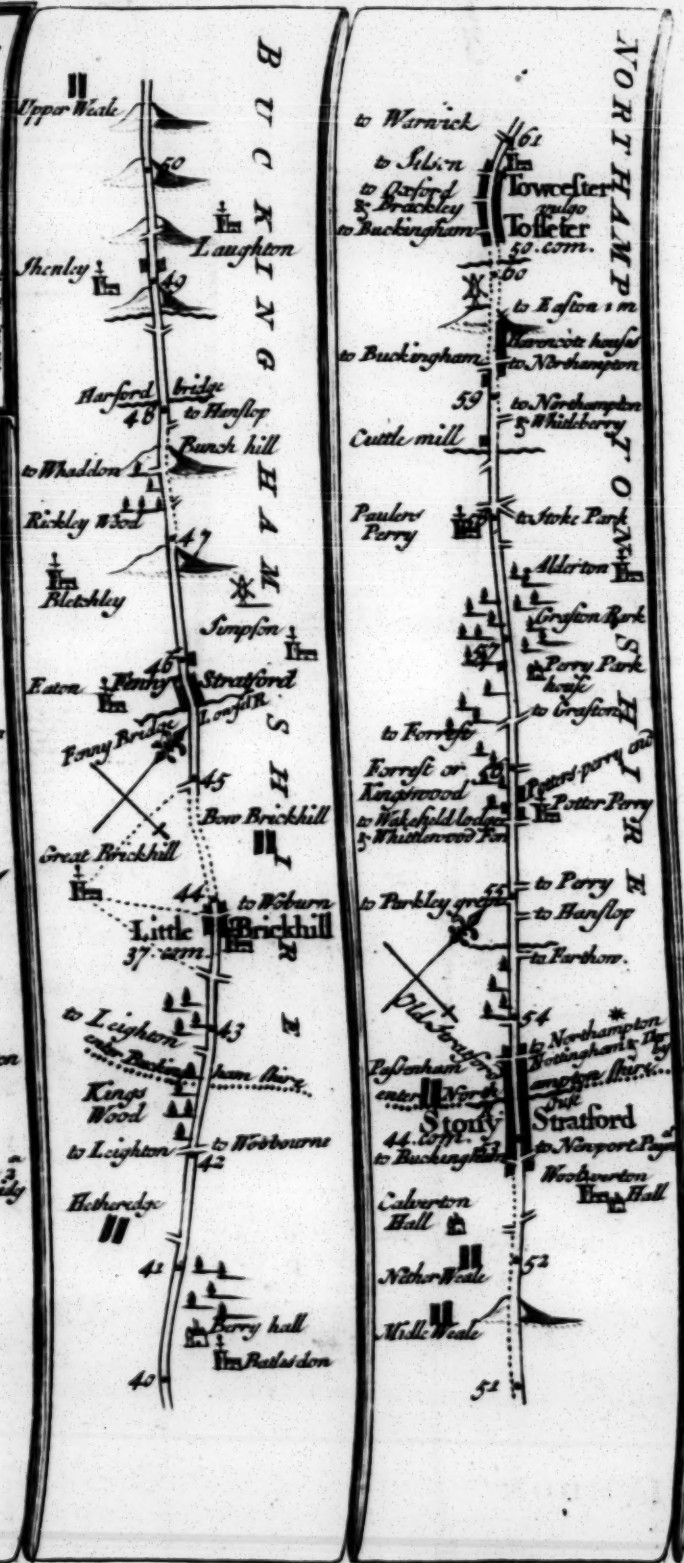 BUCKINGHAM SHIRE
Upper Weale
50
Laughton
Shenley
49
Harford bridge
48
to Hanslop
Bunch hill
to Whaddon
Rickley Wood
47
Bletchley
Simpson
46
Eaton
Fenny Stratford
Fenny Bridge
45
Bow Brickhill
Great Brickhill
44
to Woburn
Little Brickhill
37 com.
to Leighton
43
enter Buckingham shire
Kings
Wood
to Leighton
to Wobourne
42
Hetheredge
41
Berry hall
Batlesdon
40
NORTHAMPTON SHIRE
to Warwick
61
to Silson
to Oxford
& Brackley
to Buckingham
Towcester
vulgo
Tosseter
50. com.
60
to Easton 1 m
Havencott houses
to Buckingham
to Northampton
59
to Northampton
& Whitleberry
Cuttle mill
Paulers
Perry
58
to Stoke Park
Alderton
Grafton Park
57
Perry Park
house
to Grafton
to Forrest
Forrest or
Kingswood
56
Potters-perry end
Potter Perry
to Wakefeld lodge
& Whittlewood For
55
to Perry
to Parkley green
to Hanslop
to Farthow.
54
Old Stratford
to Northampton
Nottingham &
Passenham
enter Northampton shire
Ouse
Stony Stratford
44. com.
53
to Buckingham
to Newport Pag
Woolverton
Hall
Calverton
Hall
52
Nether Weale
Midle Weale
51